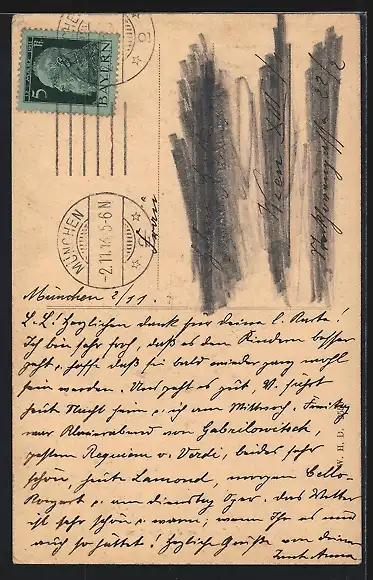 BAYERN
5
MÜNCHEN
-2.11.14.5-6 N
2
Wien XIII
München 2/11.
L. L.! Herzlichen Dank für deine l. Karte!
Ich bin sehr froh, daß es den Kindern besser
geht u. hoffe daß sie bald wieder ganz wohl
sein werden. Uns geht es gut, V. fährt
heute Nacht heim u. ich am Mittwoch. Freitag
war Klavierabend von Gabrilowitsch,
gestern Requiem v. Verdi, beides sehr
schön, heute Lamond, morgen Cello-
Konzert u. am Dienstag Oper. Das Wetter
ist sehr schön u. warm, wenn Ihr es nur
auch so hättet! Herzliche Grüße von deiner
Tante Anna
W. H. D.